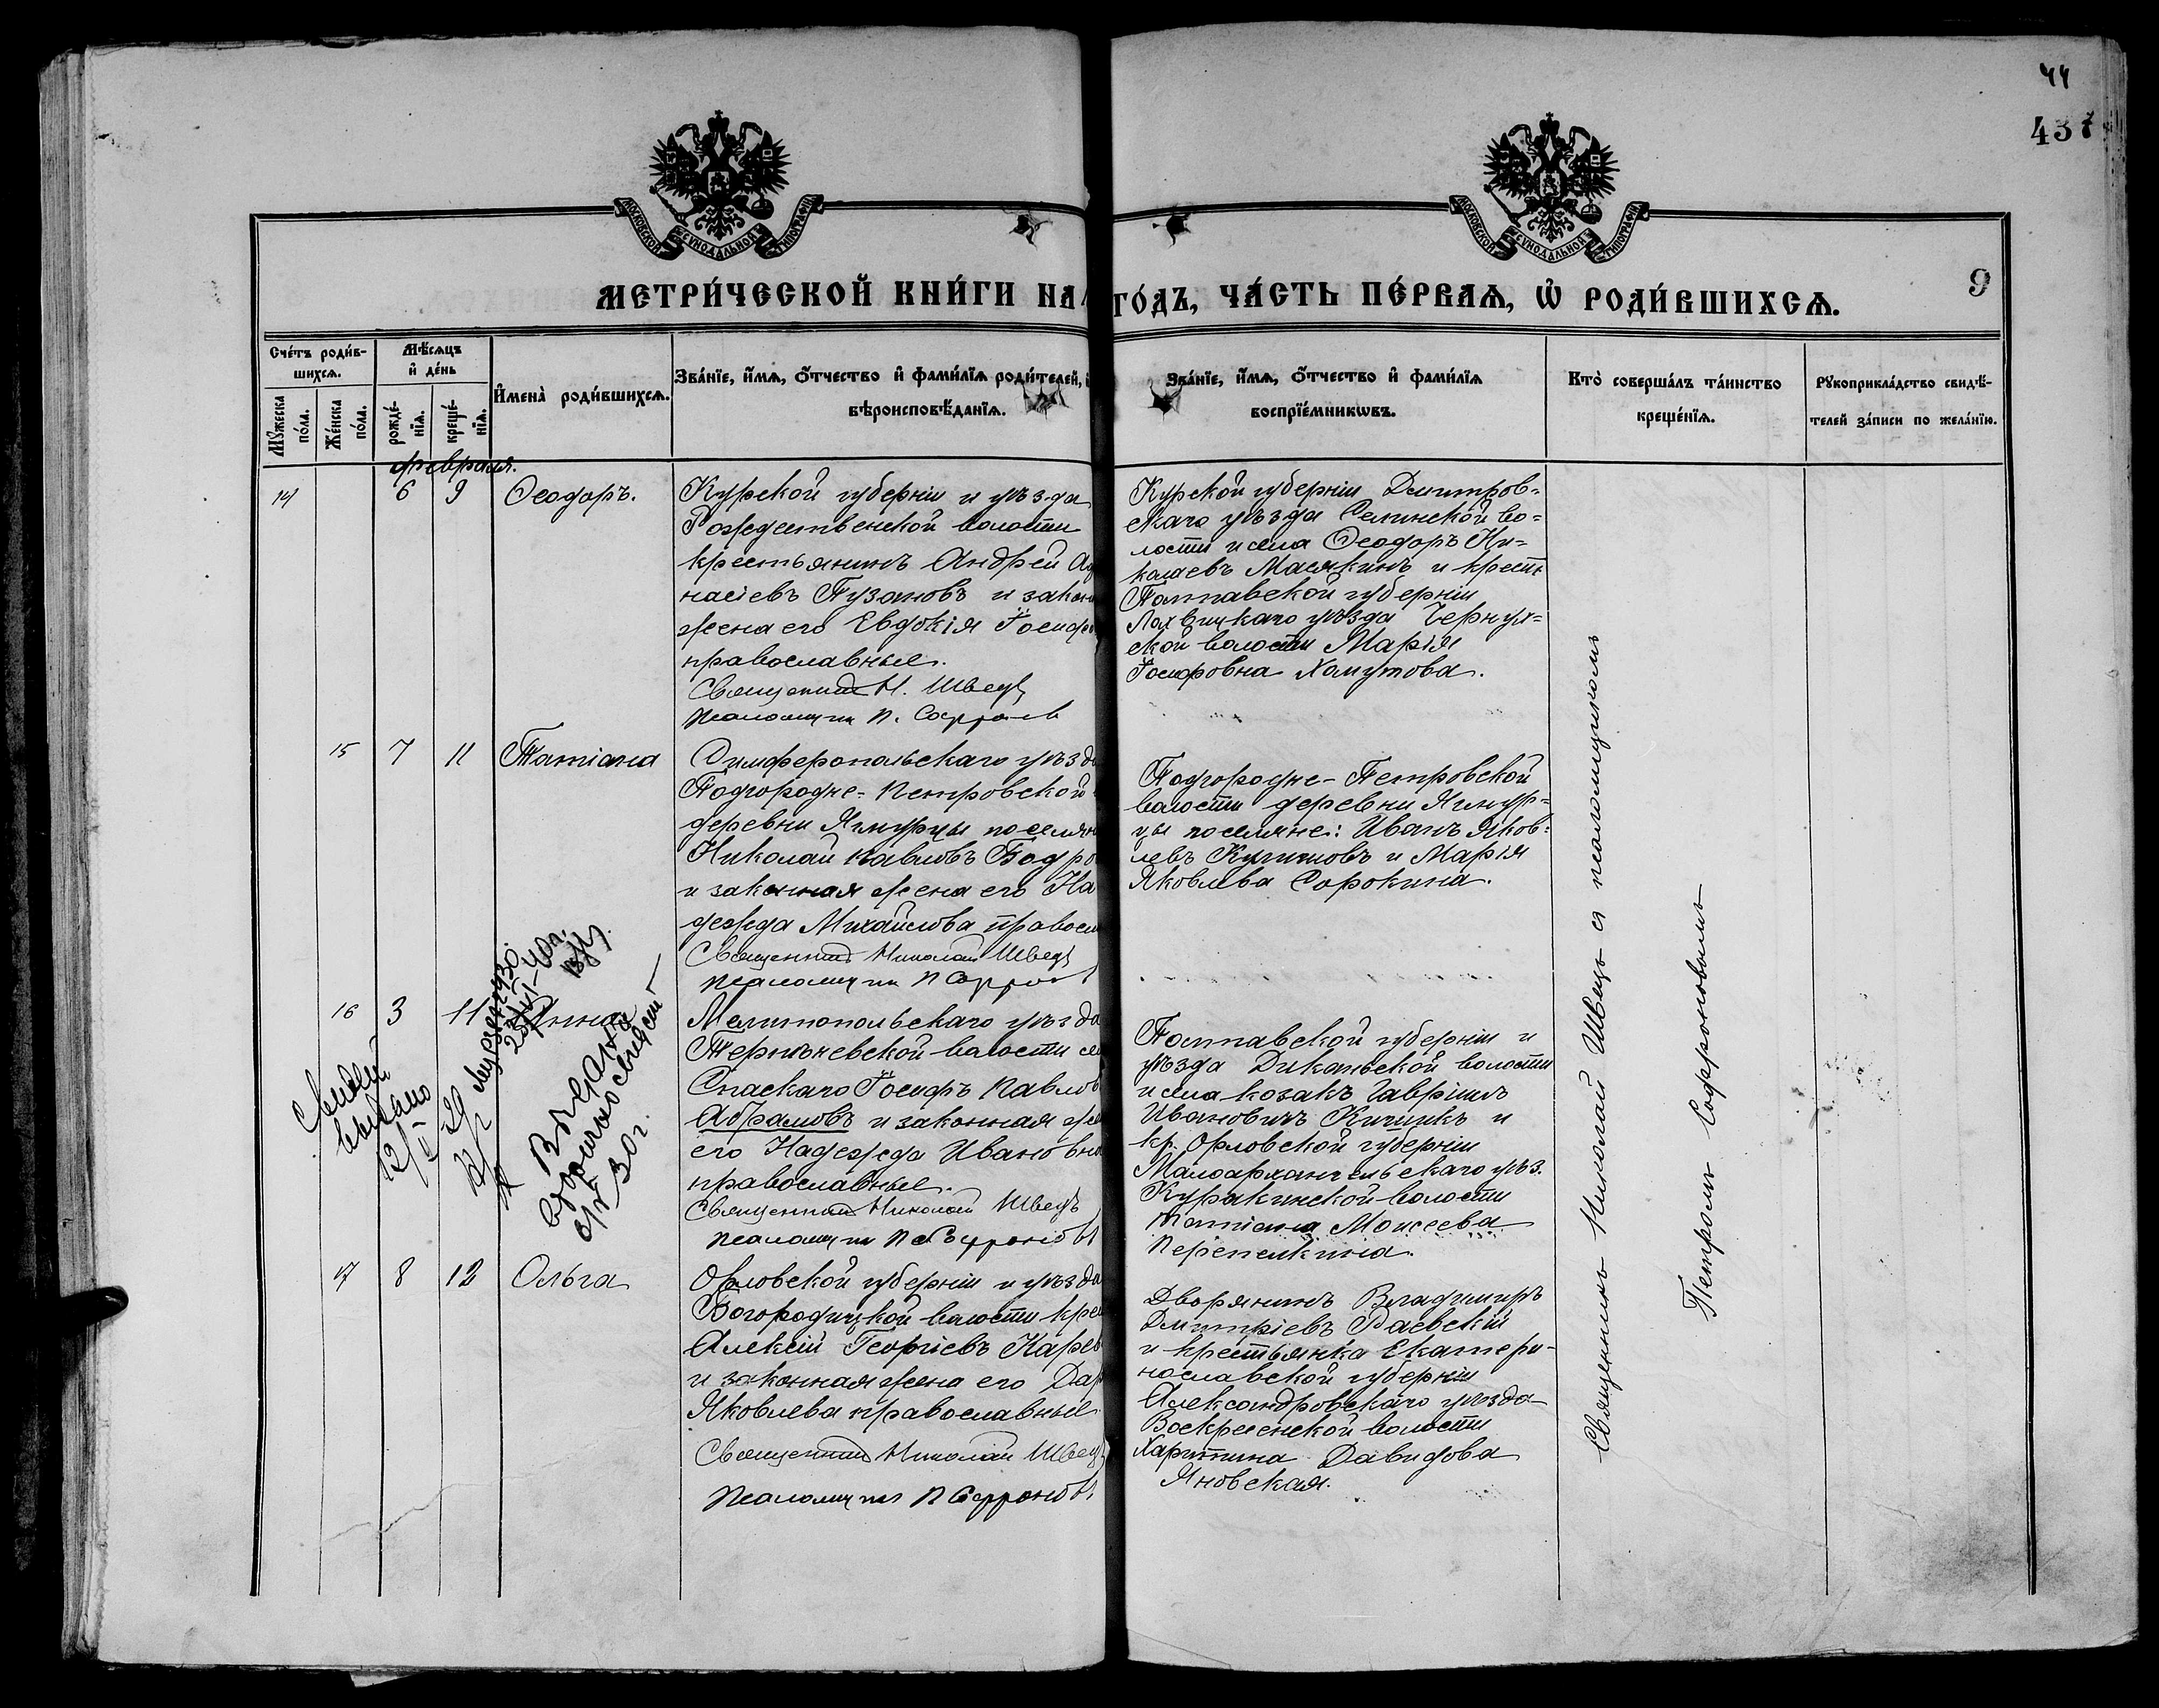 44
437
МОСКОВСКОЙ СѴНОДАЛЬНОЙ ТИПОГРАФІИ
МОСКОВСКОЙ СѴНОДАЛЬНОЙ ТИПОГРАФІИ
МЕТРИ́ЧЕСКОЙ КНИ́ГИ НА
ГО́ДЪ, ЧА́СТЬ ПЕ́РВАѦ, Ѡ҆ РОДИ́ВШИХСѦ.
9
Сче́тъ роди́в-
шихсѧ.
Мѣ́сѧцъ
и҆ де́нь
И҆мена̀ роди́вшихсѧ.
Зва́нїе, и҆́мѧ, о҆́тчество и҆ фами́лїѧ роди́телей,
вѣроисповѣ́данїѧ.
Мꙋ́жеска
по́ла.
Же́нска
по́ла.
рожде́-
нїѧ.
креще́-
нїѧ.
Зва́нїе, и҆́мѧ, о҆́тчество и҆ фами́лїѧ
воспрїе́мникѡвъ.
Кто̀ соверша́лъ та́инство
креще́нїѧ.
Рꙋкоприкла́дство свидѣ́-
телей за́писи по жела́нїю.
февраля.
14 6 9 Ѳеодоръ.
Курской губерніи и уѣзда
Рождественской волости
крестьянинъ Андрей Аѳ
насіевъ Пузановъ и закон
жена его Евдокія Іосифо
православные.
Священник Н. Швец
Псаломщик П. Софронов
Курской губерніи Дмитров-
скаго уѣзда Селинской во-
лости и села Ѳеодоръ Ни-
колаевъ Масякинъ и крест.
Полтавской губерніи
Лохвицкаго уѣзда Чернух-
ской волости Марія
Іосифовна Хомутова.
15 7 11 Татіана
Симферопольскаго уѣзда
Подгородне-Петровской
деревни Ямурцы поселян
Николай Павловъ Бодро
и законная жена его На
дежда Михайлова правосл
Священник Николай Швец
Псаломщик П Софронов
Подгородне-Петровской
волости деревни Ямур-
цы поселяне: Иванъ Яков-
левъ и Марія
Яковлева Сорокина.
16 3 11 Анна
Мелитопольскаго уѣзда
Терпѣньевской волости се
Спаскаго Іосифъ Павлов
Абрамовъ и законная же
его Надежда Ивановна
православные.
Священник Николай Швецъ
Псаломщик П Софроновъ
Полтавской губерніи и
уѣзда Диканьской волости
и села козакъ Гавріилъ
Ивановичъ и
кр. Орловской губерніи
Малоархангельскаго уѣз.
Куракинской волости
Татіана Моисеева
Перепелкина.
30 г.
17 8 12 Ольга
Орловской губерніи и уѣзда
Богородицкой волости кре
Алексій Георгіевъ Карев
и законная жена его Дар
Яковлева православные
Священник Николай Швец
Псаломщик П Софроновъ
Дворянинъ Владиміръ
Дмитріевъ Раевскій
и крестьянка Екатери-
нославской губерніи
Александровскаго уѣзда
Воскресенской волости
Харитина Давидова
Яновская.
Священникъ Николай Швецъ с псаломщикомъ
Петромъ Софроновымъ